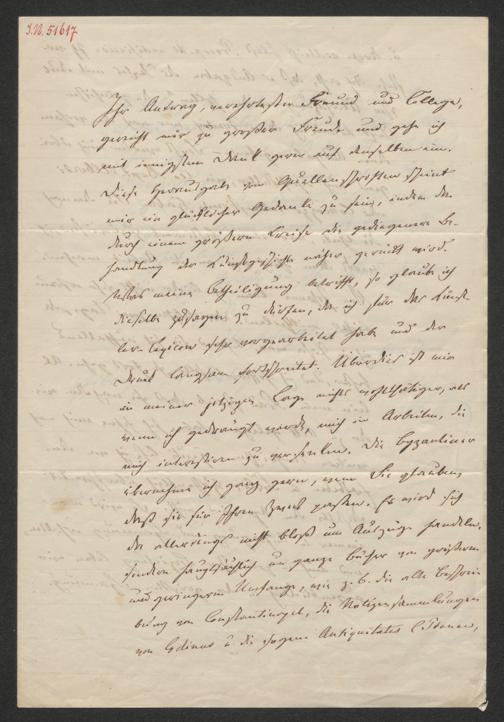 I.N. 51617
Ihr Antrag, verehrtester Freund und College,
gereicht mir zu großer Freude und gehe ich
mit innigstem Dank gerne auf denselben ein.
Diese Herausgabe von Quellenschriften scheint
mir ein glücklicher Gedanke zu sein, indem da-
durch einem größern Kreise die gediegenere Be-
handlung der Kunstgeschichte näher gerückt wird.
Was meine Betheiligung betrifft, so glaube ich
dieselbe zusagen zu dürfen, da ich für das Künst-
lerlexicon sehr vorgearbeitet habe und der
Druck langsam fortschreitet. Überdies ist mir
in meiner jetzigen Lage nichts wohlthätiger, als
wenn ich gedrängt werde, mich in Arbeiten, die
mich interessiren zu versenken. Die Byzantiner
übernehme ich ganz gern, wenn Sie glauben,
daß sie für Ihren Zweck passen. Es wird sich
da allerdings nicht bloß um Auszüge handeln,
sondern hauptsächlich um ganze Bücher von größerem
und geringerem Umfange, wie z. B. die alte Beschrei-
bung von Constantinopel, die Notizensammlungen
von Codinus u die sogen. Antiquitates